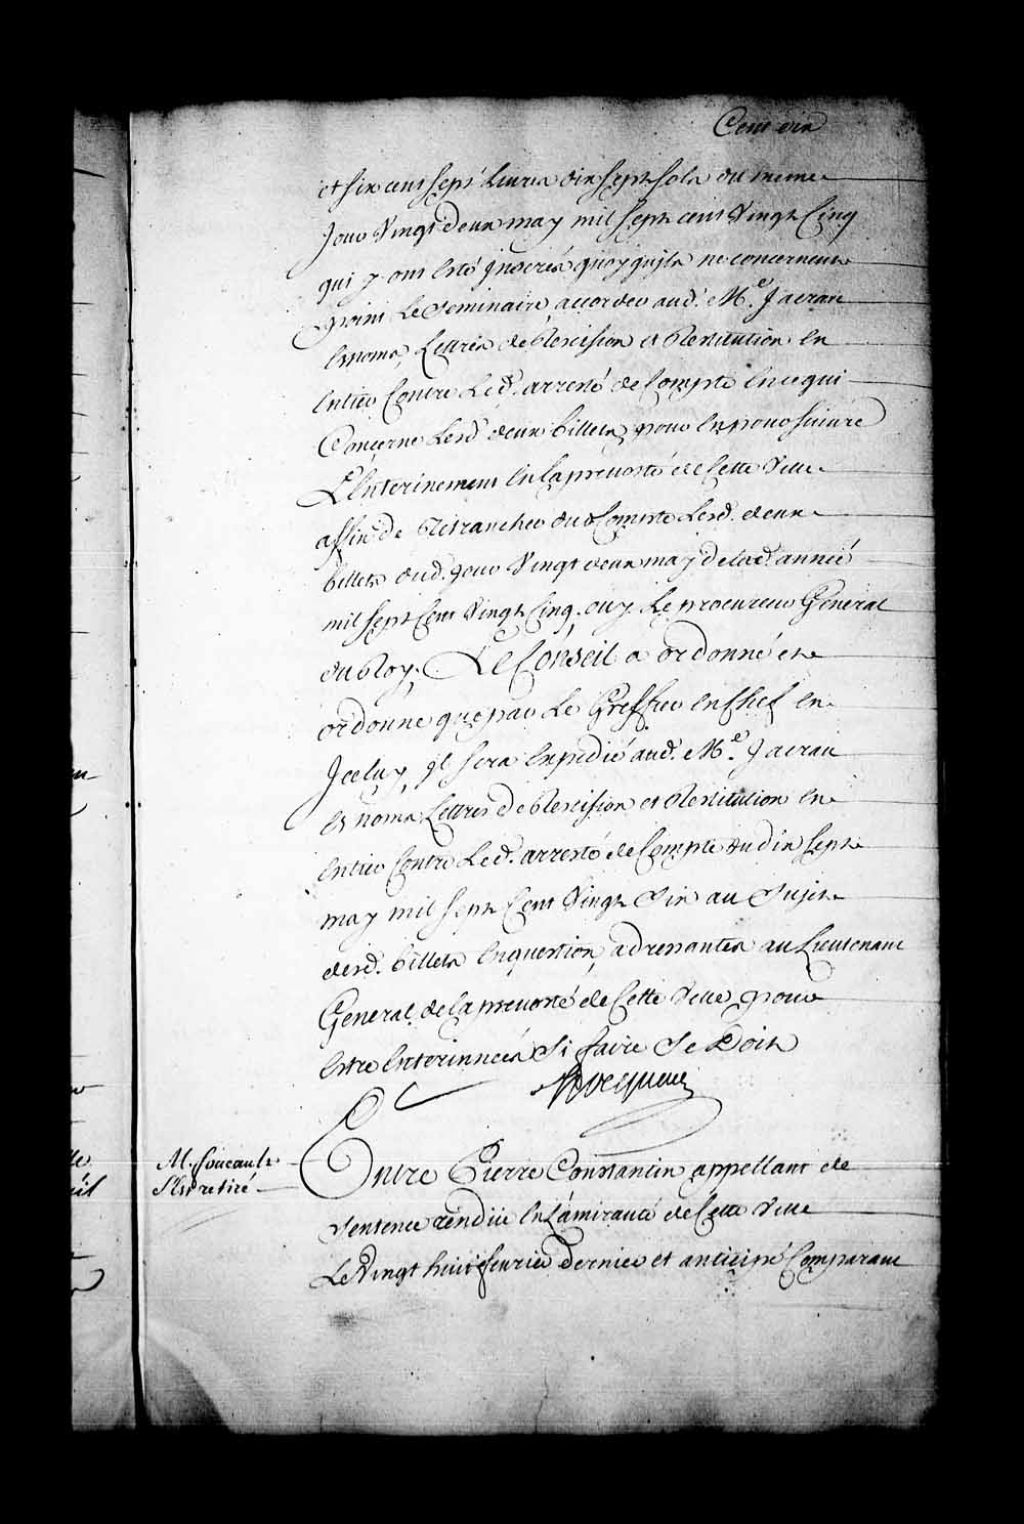 Cent dix
et six cens sept Livres dix sept sols du meme
Jour Vingt deux may mil sept cent Vingt Cinq
qui y ont esté jnserés quoyqujls ne concernent
point Le Seminaire, accorder aud. Me. Jacran
es noms, Lettres de Rescision et Restitution en
entier Contre Led. arresté de Compte en ce qui
Concerne Lesd. deux billets, pour en poursuivre
L'Enterinement en La prevosté de Cette Ville
affin de Retrancher du Compte Lesd. deux
billets dud. jour Vingt deux may de lad. année
mil sept Cent Vingt Cinq. ouy Le procureur General
du Roy. Le Conseil a ordonné et
ordonne que par Le Greffier en Chef en
Jceluy, jl sera expedié aud. Me. Jacran
es noms Lettres de Rescision et Restitution en
entier Contre Led. arresté de Compte du dix sept
may mil sept Cent Vingt Six au Sujet
desd. billets en question, adressantes au Lieutenant
General de La prevosté de Cette Ville, pour
estre Enterinnées Si faire Se Doit
Hocquart
M. foucault
s'est retiré
Entre Pierre Constantin appellant de
Sentence rendüe en L'amirauté de Cette Ville
Le Vingt huit fevrier dernier et anticipé Comparant